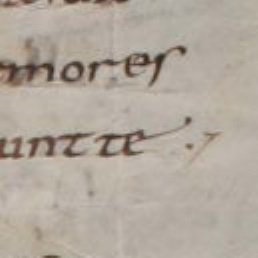 mores
unt te .,